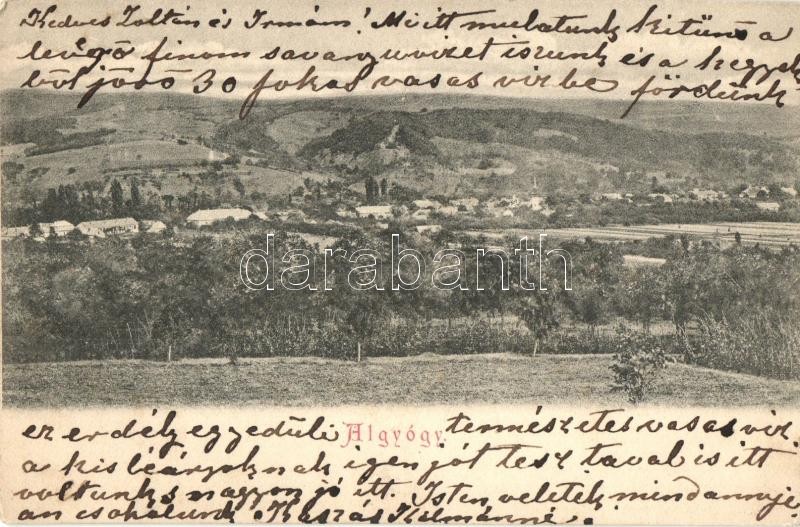 Kedves Zoltán és Irmám! Mi itt mulatunk kitünö a
levegő finom savanyuvizet iszunk és a hegyek
ből jövö 30 fokas vasas vizbe fördünk
darabanth
ez erdély egyedüli Algyógy. természetes vasas viz.
a kis leányoknak igen jót tesz taval is itt
voltunk s nagyon jó itt. Isten veletek mindannyi
an csokolunk Kaszás Kálmánné